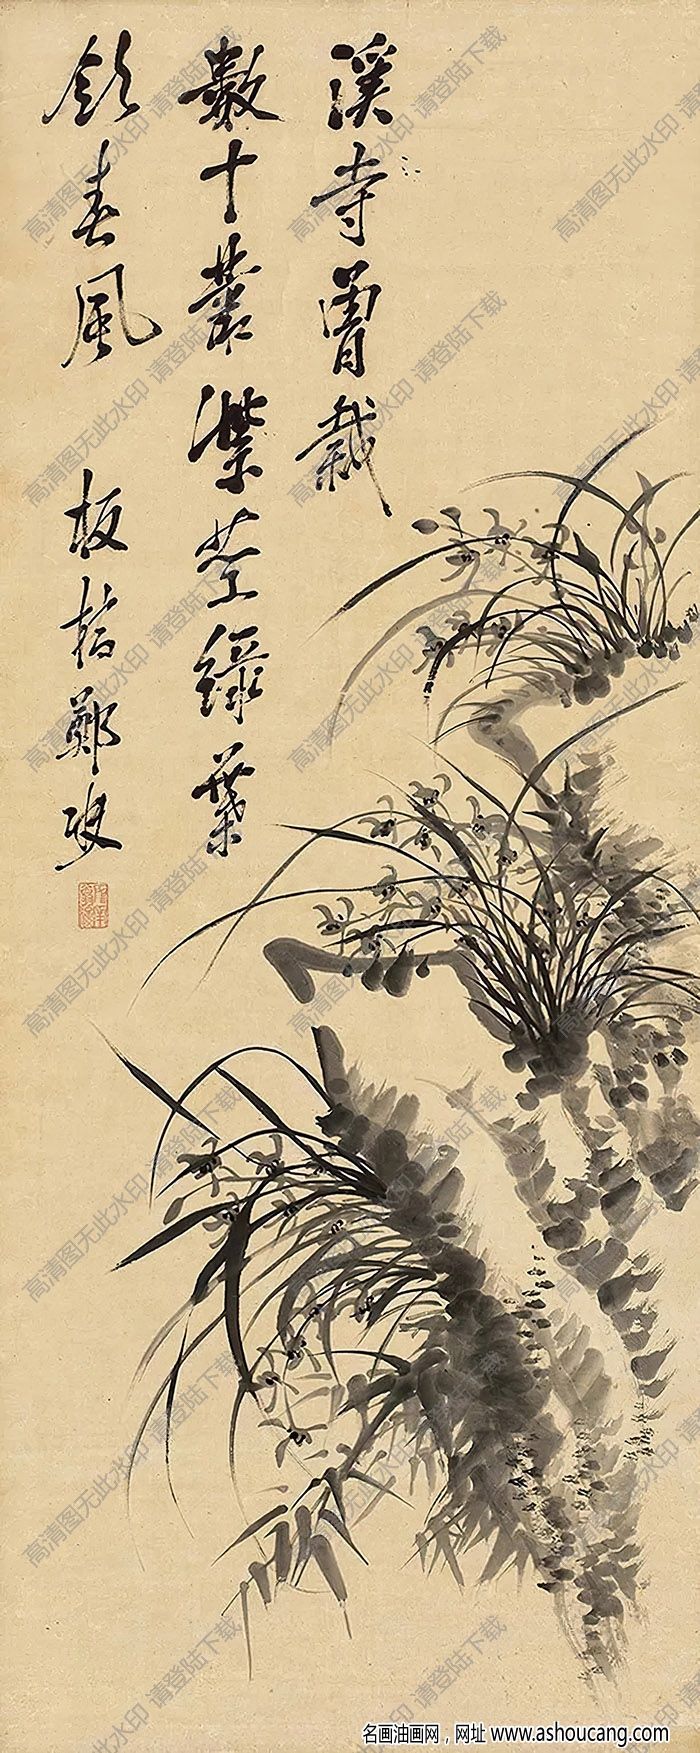 溪寺曾栽
數十叢紫莖綠葉
領春風 板橋鄭燮
高清图无此水印 请登陆下载
名画油画网，网址 www.ashoucang.com